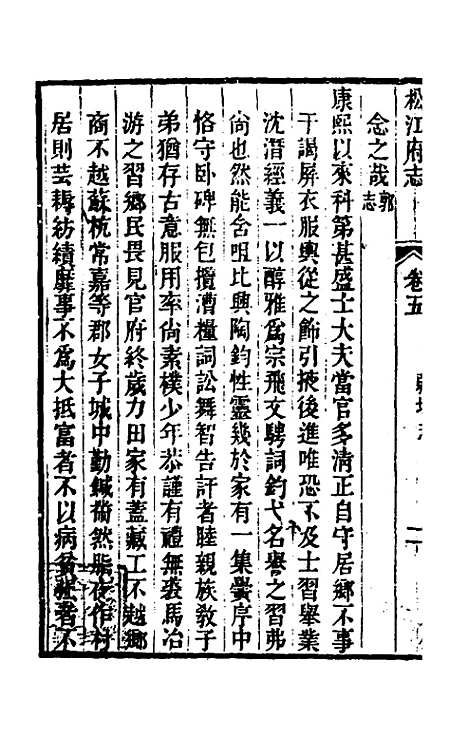 松江府志 卷五
念之哉郭志
康熙以來科第甚盛士大夫當官多清正自守居鄉不事
干謁屏衣服輿從之飾引掖後進唯恐不及士習舉業
沈潛經義一以醇雅爲宗飛文騁詞釣弋名譽之習弗
尙也然能含咀比興陶鈞性靈幾於家有一集黌序中
恪守卧碑無包攬漕糧詞訟舞智告訐者睦親族敎子
弟猶存古意服用率尙素樸少年恭謹有禮無裘馬冶
游之習鄉民畏見官府終歲力田家有蓋藏工不越鄉
商不越蘇杭常嘉等郡女子城中勤鍼黹然脂夜作村
居則芸耨紡績靡事不爲大抵富者不以病貧壯者不